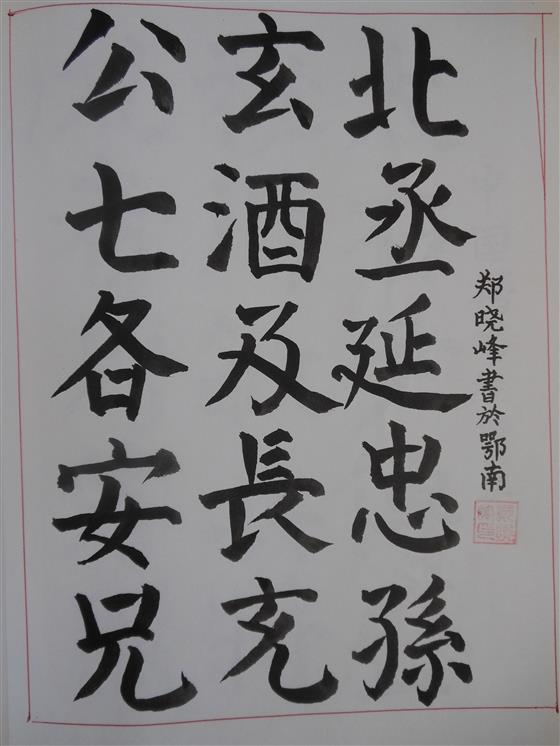 公七各安兄
玄酒及長充
北丞延忠孫
郑晓峰書於鄂南